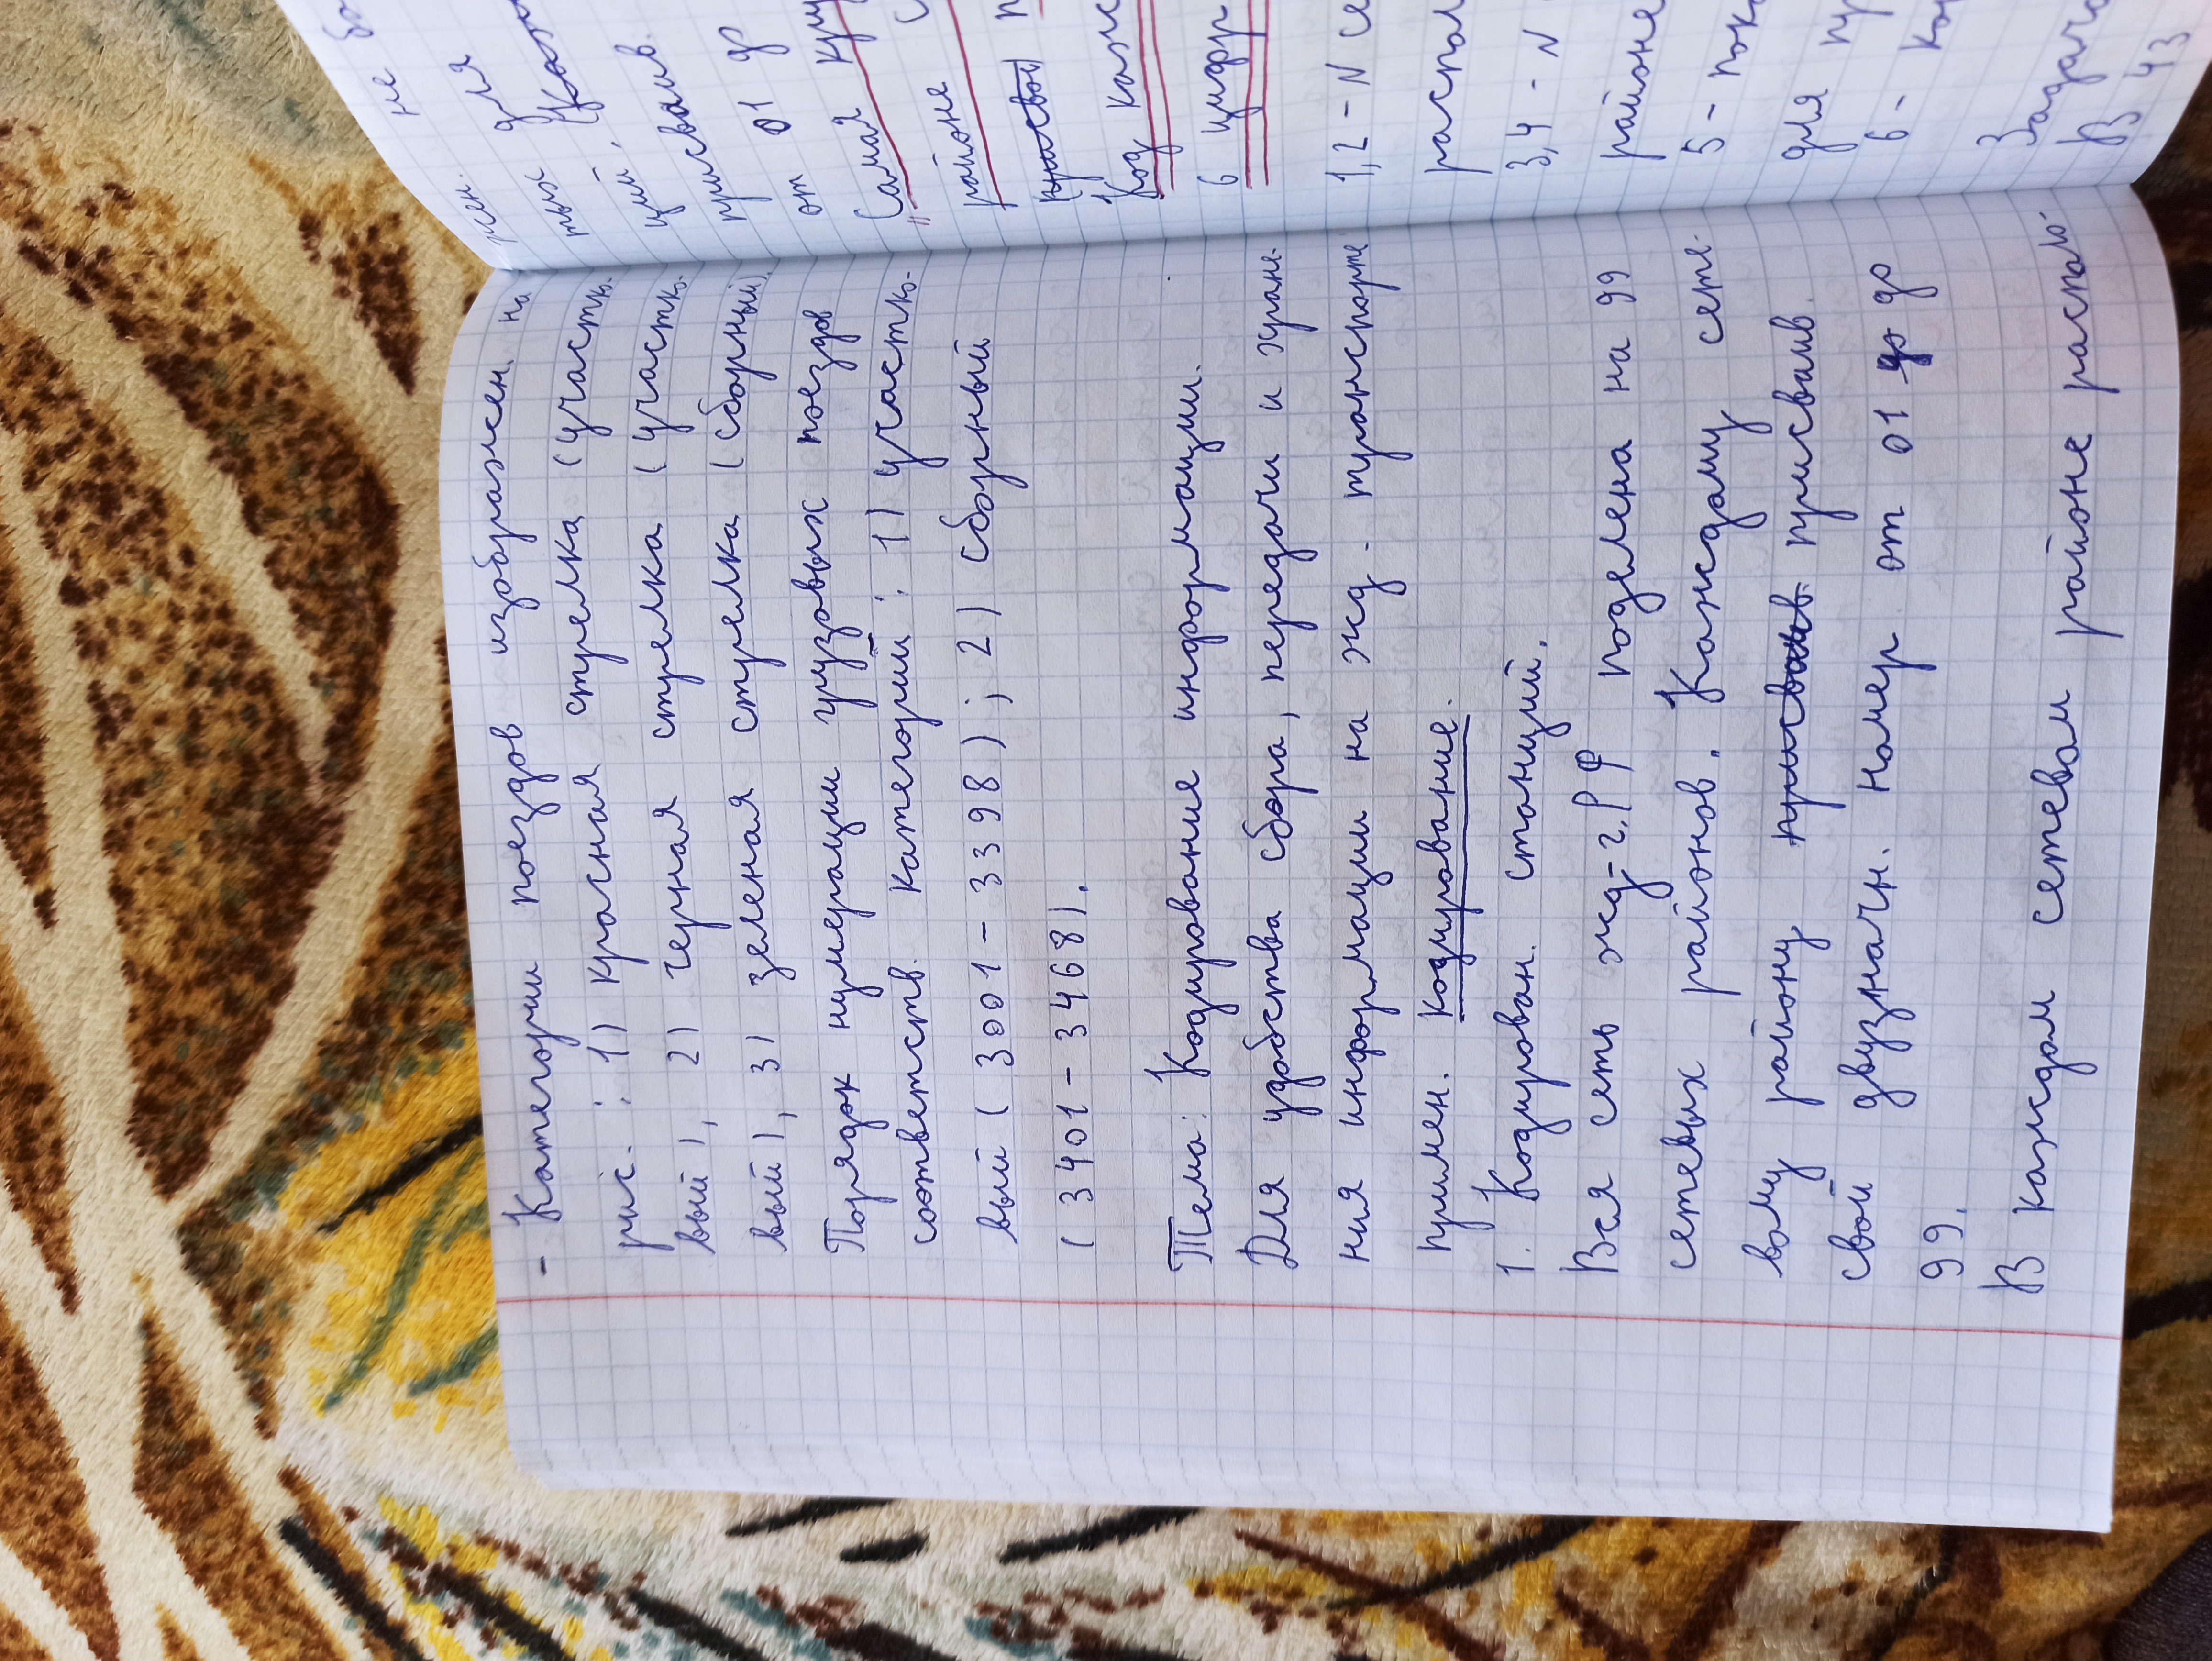 - Категории поездов изображен. на
рис. : 1) красная стрелка (участко-
вый), 2) черная стрелка (участко-
вый), 3) зеленая стрелка (сборный).
Порядок нумерации грузовых поездов
соответств. категории : 1) участко-
вый (3001 - 3398) ; 2) сборный
(3401 - 3468).
Тема: Кодирование информации.
Для удобства сбора, передачи и хране-
ния информации на жд. транспорте
примен. кодирование.
1. Кодирован. станций.
Вся сеть жд-г. РФ поделена на 99
сетевых районов. Каждому сете-
вому району присваив
свой двузначн. номер от 01 до
99.
В каждом сетевом районе располо-
не
жен. для
тых
ций.
присваив.
от 01 до
Самая
районе
Код
6 цифр
1,2 - N
распол
3,4 - N
районе
5 -
для
6 -
Задача
В 43